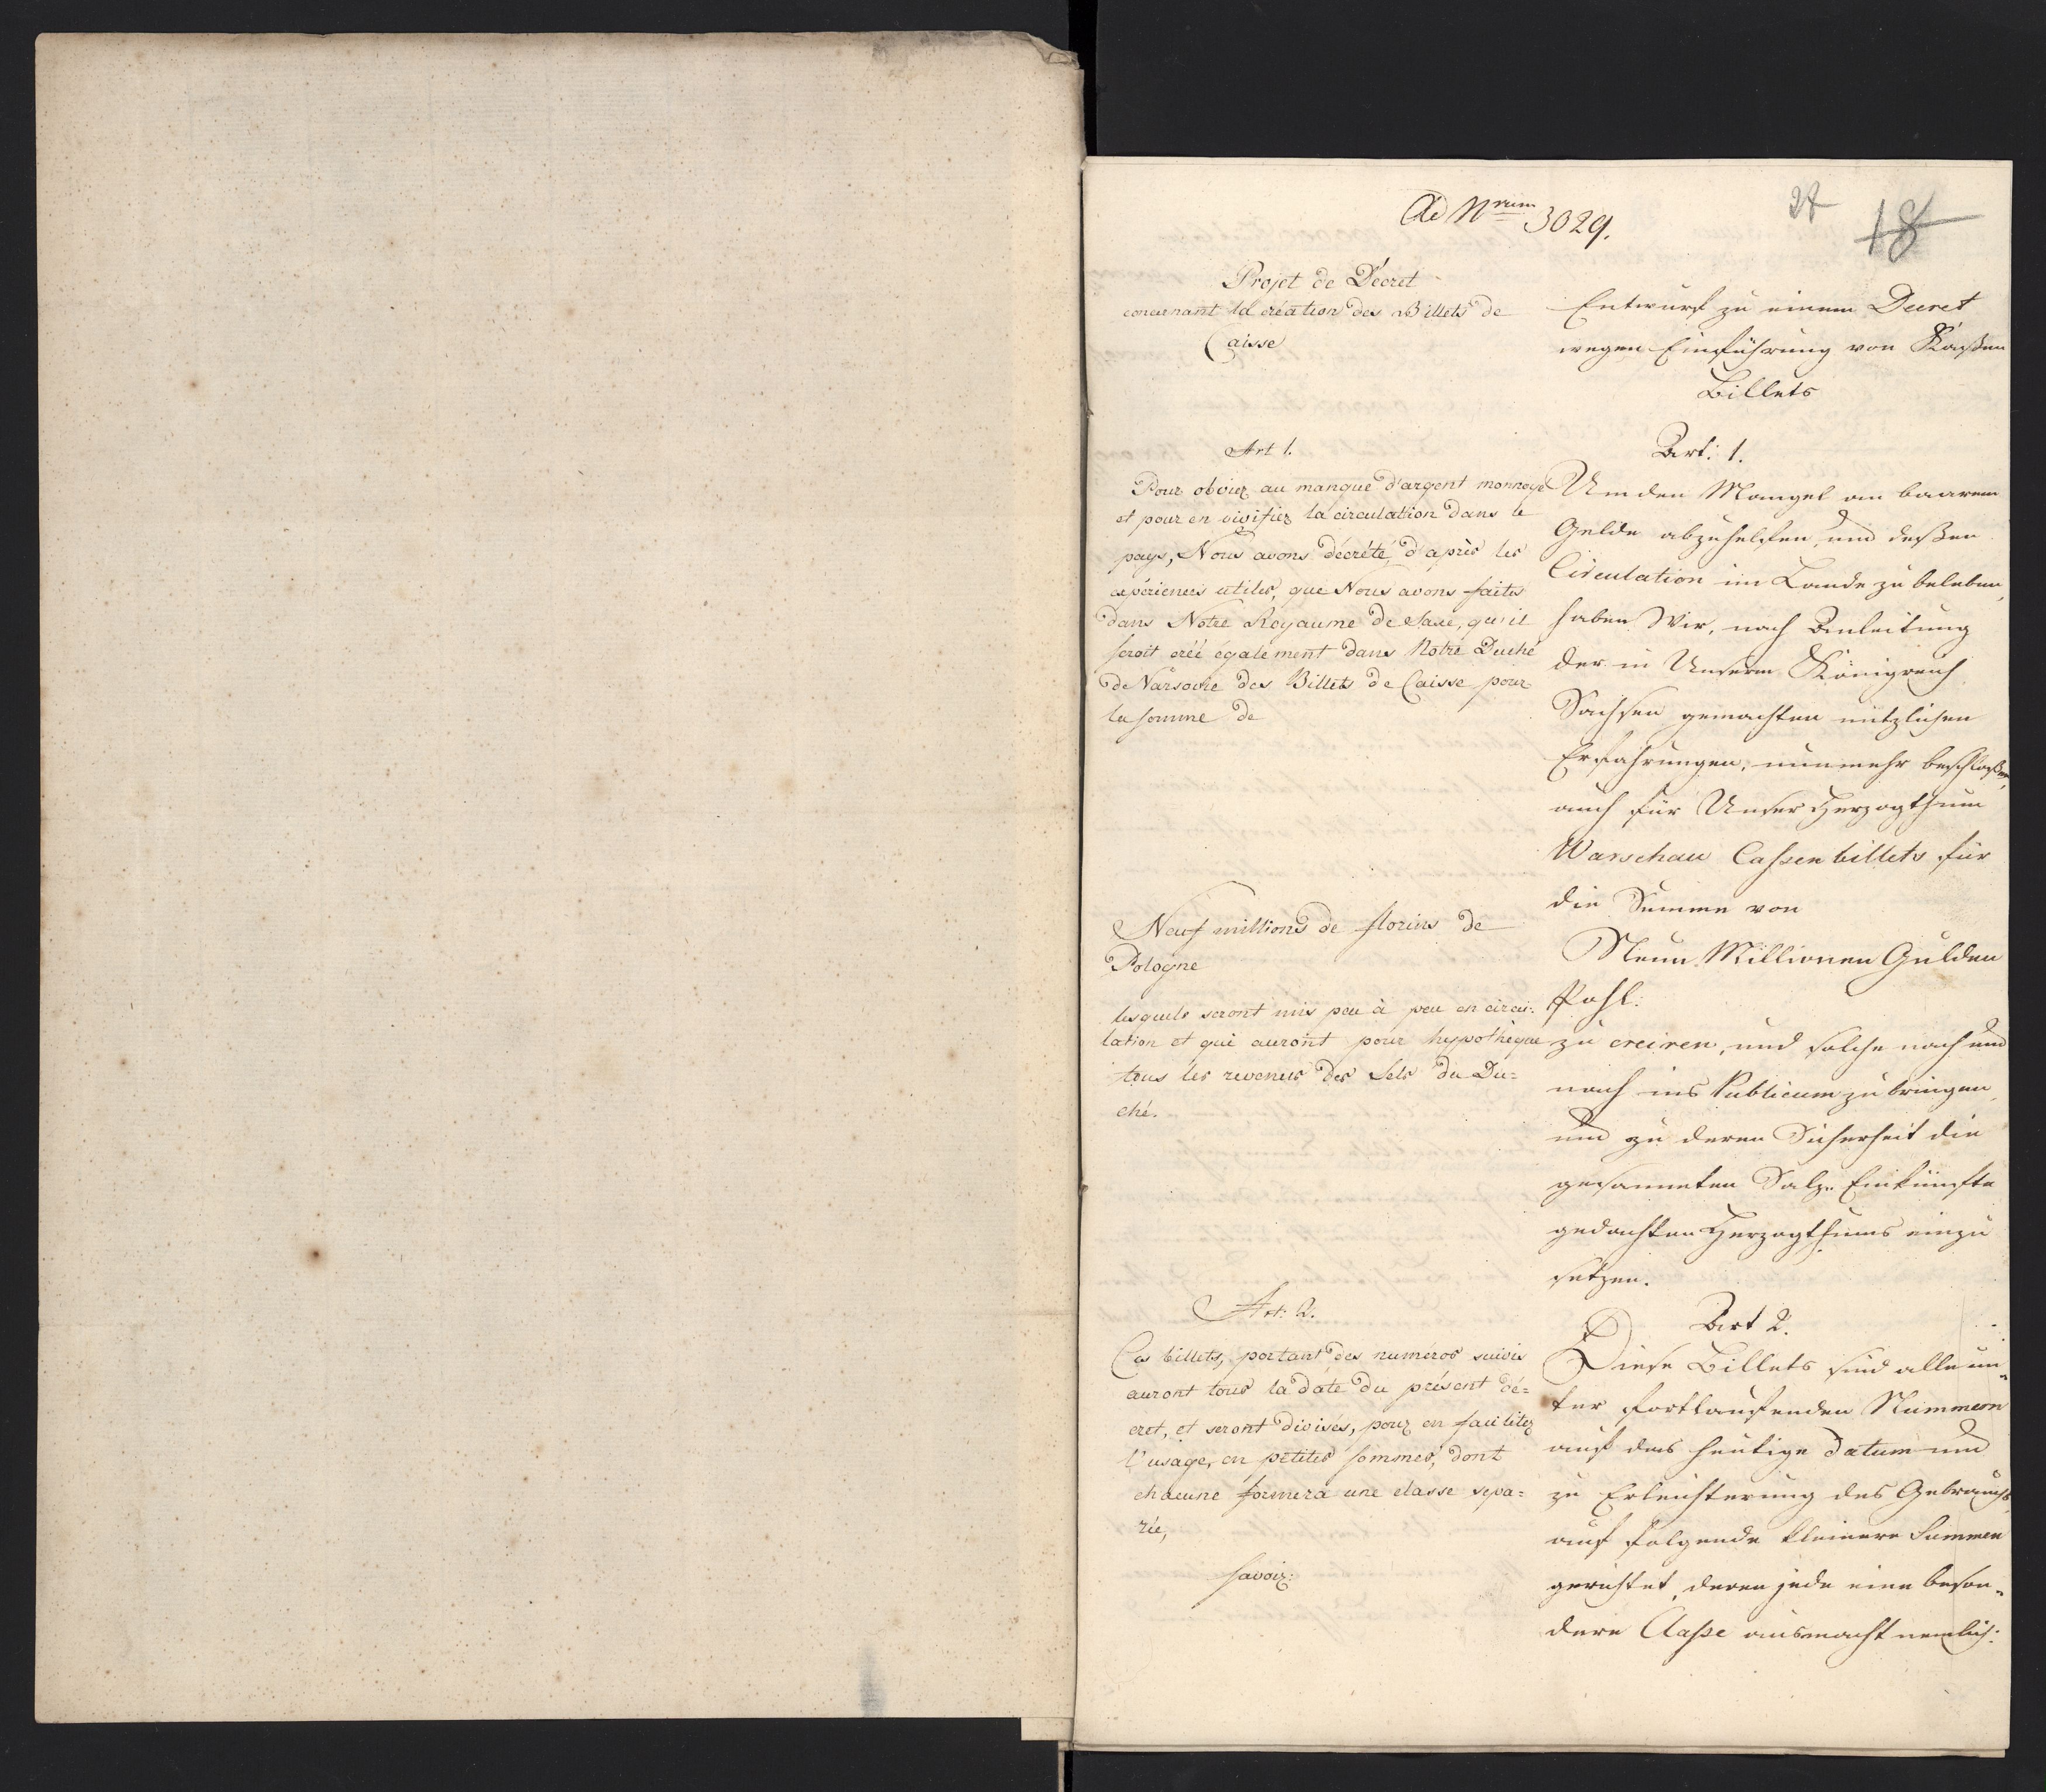 Ad Nrum 3029.
27
18
Projet de Décret
concernant la création des Billets de
Caisse
Art 1.
Pour obvier au manque d'argent monnoyé
et pour en vivifier la circulation dans le
pays, Nous avons décrété, d'après les
expériences utiles, que Nous avons faites
dans Notre Royaume de Saxe, qu'il
seroit créé également dans Notre Duché
de Varsovie des Billets de Caisse pour
la somme de
Neuf millions de florins de
Pologne
lesquels seront mis peu à peu en circu=
lation et qui auront pour hypothèque
tous les revenus des Sels du Du=
ché.
Art: 2.
Ces billets, portant des numéros suivis
auront tous la date du présent dé=
cret, et seront divisés, pour en faciliter
l'usage, en petites sommes, dont
chacune formera une classe sépa=
rée,
savoir:
Entwurf zu einem Decret
wegen Einführung von Kaßen
Billets
Art: 1.
Um den Mangel an baarem
Gelde abzuhelfen, und deßen
Circulation im Lande zu beleben,
haben Wir, nach Anleitung
der in Unserm Königreich
Sachsen gemachten nützlichen
Erfahrungen, nunmehr beschloßen,
auch für Unser Herzogthum
Warschau Cassenbillets für
die Summe von
Neun Millionen Gulden
Pohl:
zu creiren, und solche nach und
nach ins Publicum zu bringen,
und zu deren Sicherheit die
gesammten Salz-Einkünfte
gedachten Herzogthums einzu
setzen.
Art 2.
Diese Billets sind alle un=
ter fortlaufenden Nummern
auf das heutige Datum und
zu Erleichterung des Gebrauchs
auf folgende kleinere Summen
gerichtet, deren jede eine beson=
dere Classe ausmacht nemlich: